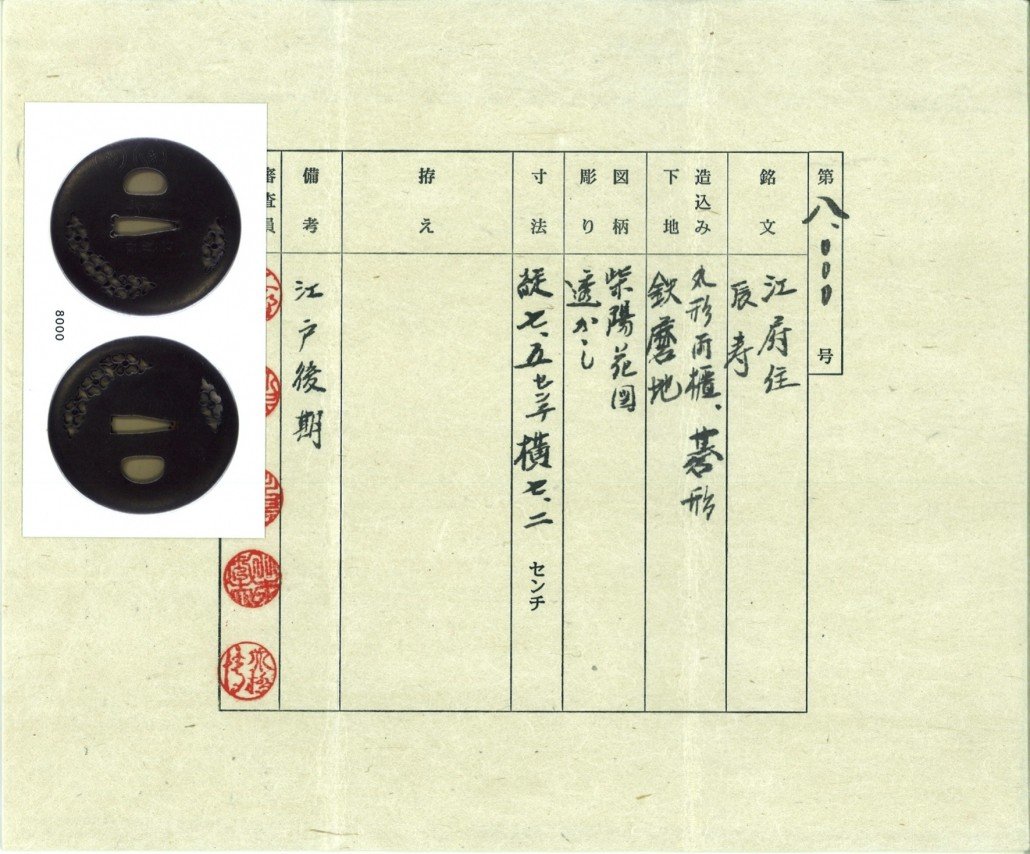 第八、〇〇〇号
銘文
江府住
辰寿
造込み
下地
丸形両櫃、碁形
鉄磨地
図柄
彫り
柴陽花図
透かし
寸法
竪七、五センチ横七、二センチ
拵え
備考
江戸後期
審査員
8000